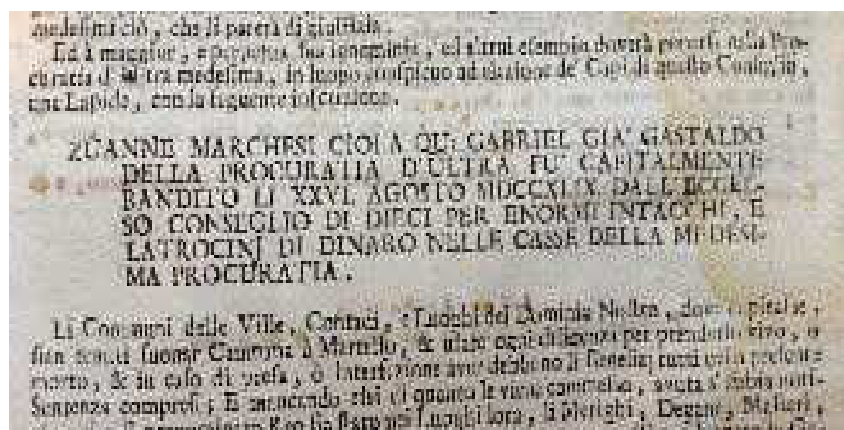 medesimi ciò, che li parerà di giustizia.
Ed à maggior, e perpetua sua ignominia, ed altrui esempio dovrà ponersi nella Pro-
curatia d' tra medesima, in luogo conspicuo ad elezione de' Capi di questo Consiglio,
una Lapide, con la seguente inscrizione.
ZUANNE MARCHESI CIOLA QU: GABRIEL GIA' GASTALDO
DELLA PROCURATIA D'ULTRA FU' CAPITALMENTE
BANDITO LI XXVI. AGOSTO MDCCXLIX. DALL' ECCEL-
SO CONSEGLIO DI DIECI PER ENORMI INTACCHI, E
LATROCINJ DI DINARO NELLE CASSE DELLA MEDESI-
MA PROCURATIA.
Li Communi delle Ville, Contadi, e Luoghi del Dominio Nostro, dove
sian tenuti suonar Campana à Martello, & usare ogni diligenza per prenderlo vivo, o
morto, & in caso di presa, ò interfezione aver debbano li Beneficj tutti nella presente
Sentenza compresi; E mancando essi di quanto le viene commesso, avuta s' abbia noti-
Reo sia stato nei Luoghi loro, li Merighi, Degani,